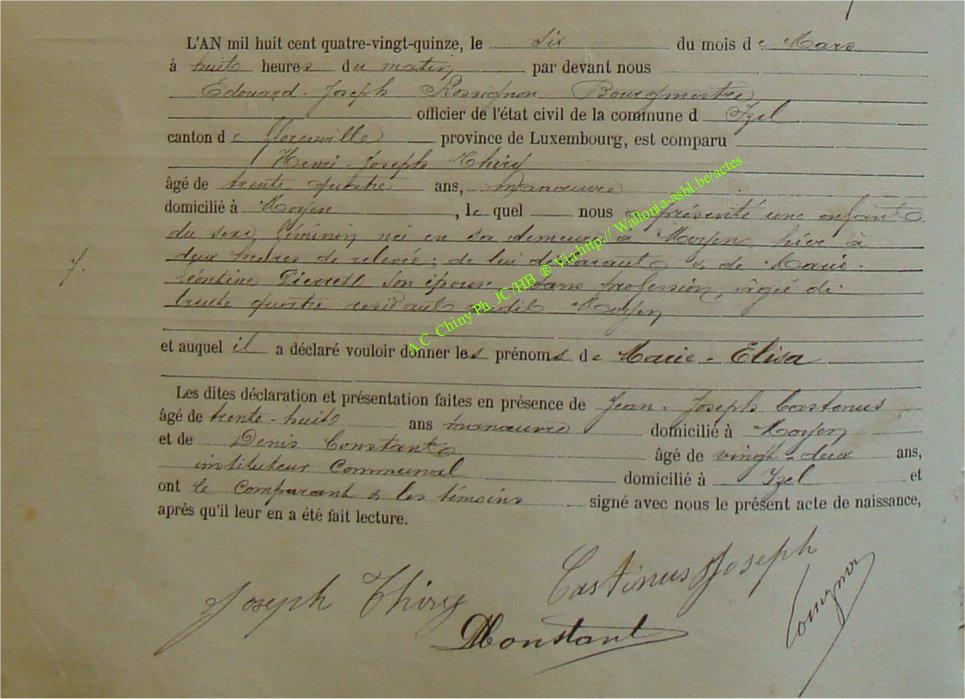 L'AN mil huit cent quatre-vingt-quinze, le six du mois de Mars
à huit heures du matin par devant nous
Édouard-Joseph Rossignon Bourgmestre
officier de l'état civil de la commune d Izel
canton de Florenville province de Luxembourg, est comparu
Henri-Joseph Thiry
âgé de trente quatre ans, manœuvre
domicilié à Moyen, le quel nous a présenté une enfant
du sexe féminin née en sa demeure à Moyen, hier à
deux heures de relevée; de lui déclarant & de Marie-
Léontine Pierret son épouse sans profession, âgée de
trente quatre résidant audit Moyen
et auquel il a déclaré vouloir donner les prénoms de Marie-Élisa
Les dites déclaration et présentation faites en présence de Jean-Joseph Castenus
âgé de trente-huit ans manœuvre domicilié à Moyen
et de Denis Constant âgé de vingt-deux ans,
instituteur Communal domicilié à Izel et
ont le Comparant & les témoins signé avec nous le présent acte de naissance,
après qu'il leur en a été fait lecture.
Joseph Thiry
Castinus Joseph
DConstant
A.C. Chiny Ph. JC/HB ® Via http:// Wallonia-asbl.be/actes